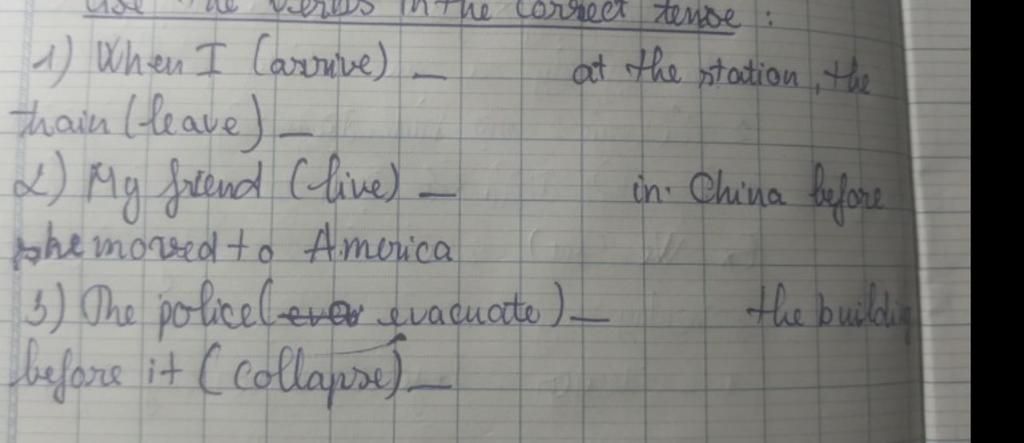 Use the verbs in the correct tense :
1) When I (arrive) _ at the station, the
train (leave) _
2) My friend (live) _ in China before
she moved to America
3) The police (ever evacuate) _ the building
before it (collapse) _